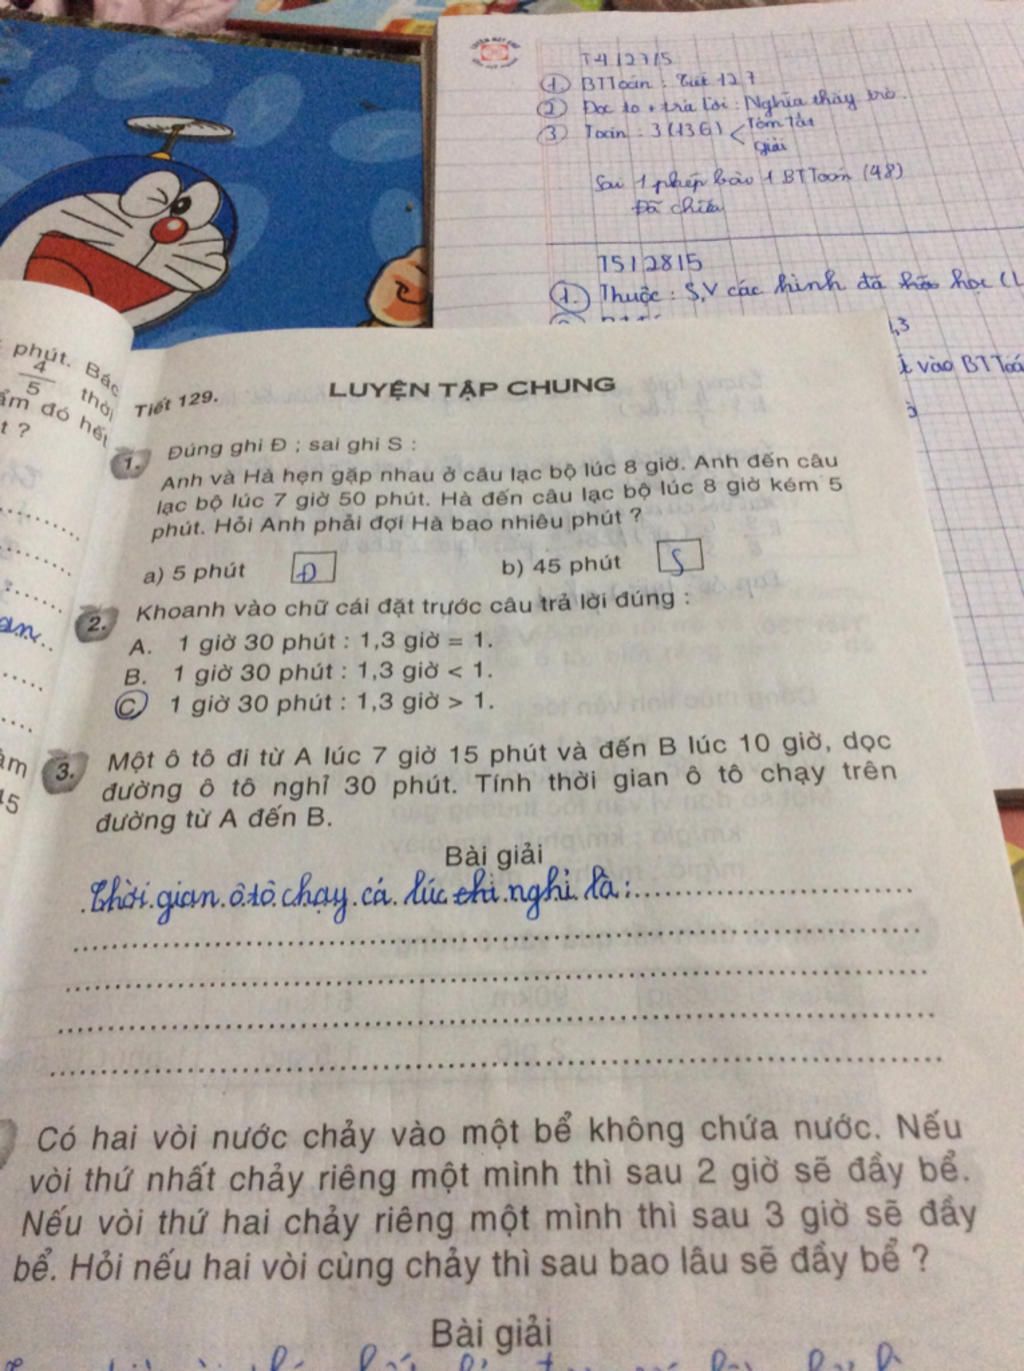 T4 127/5
① BTToán : Tiết 127
② Đọc to + trả lời : Nghĩa thầy trò.
③ Toán : 3 (136) < Tóm tắt
giải
Sai 1 phép bào 1 BTToán (48)
Đã chữa
T5 128/5
①. Thuộc : S,V các hình đã học (L
1,3
vào BTToá
phút. Bác
4
5
thời
ẩm đó hết
t ?
Tiết 129.
LUYỆN TẬP CHUNG
1. Đúng ghi Đ ; sai ghi S :
Anh và Hà hẹn gặp nhau ở câu lạc bộ lúc 8 giờ. Anh đến câu
lạc bộ lúc 7 giờ 50 phút. Hà đến câu lạc bộ lúc 8 giờ kém 5
phút. Hỏi Anh phải đợi Hà bao nhiêu phút ?
a) 5 phút Đ b) 45 phút S
2. Khoanh vào chữ cái đặt trước câu trả lời đúng :
A. 1 giờ 30 phút : 1,3 giờ = 1.
B. 1 giờ 30 phút : 1,3 giờ < 1.
C 1 giờ 30 phút : 1,3 giờ > 1.
3. Một ô tô đi từ A lúc 7 giờ 15 phút và đến B lúc 10 giờ, dọc
đường ô tô nghỉ 30 phút. Tính thời gian ô tô chạy trên
đường từ A đến B.
Bài giải
Thời gian ô tô chạy cá lúc nghỉ là :
Có hai vòi nước chảy vào một bể không chứa nước. Nếu
vòi thứ nhất chảy riêng một mình thì sau 2 giờ sẽ đầy bể.
Nếu vòi thứ hai chảy riêng một mình thì sau 3 giờ sẽ đầy
bể. Hỏi nếu hai vòi cùng chảy thì sau bao lâu sẽ đầy bể ?
Bài giải